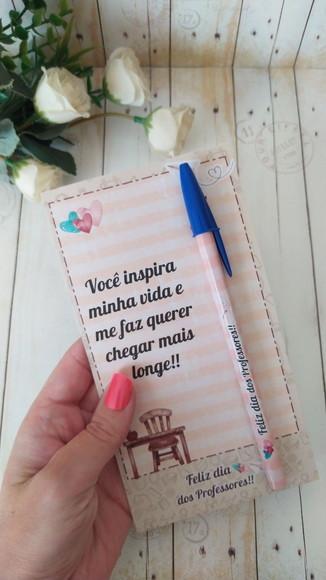 Você inspira
minha vida e
me faz querer
chegar mais
longe!!
Feliz dia dos Professores!!
Feliz dia
dos Professores!!